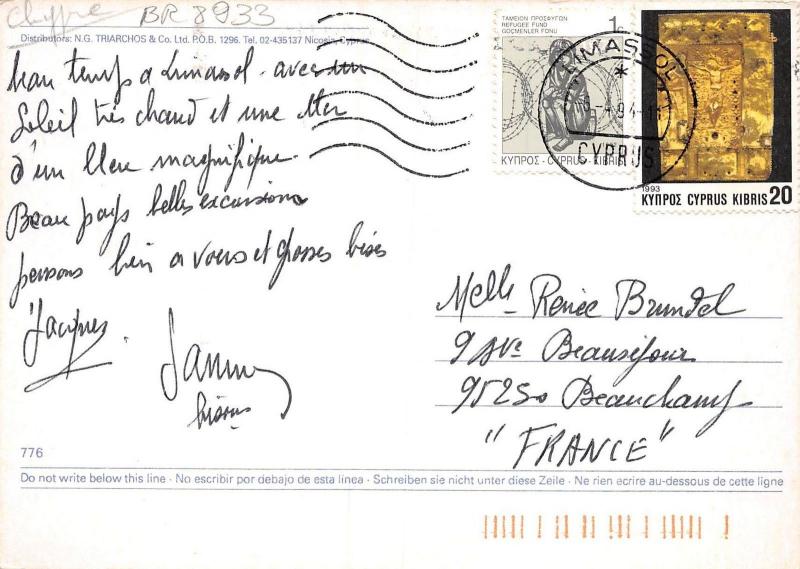 Chypre BR 8933
Distributors: N.G. TRIARCHOS & Co. Ltd. P.O.B. 1296. Tel. 02-435137 Nicosia, Cyprus
beau temps a Limassol. avec un
Soleil très chaud et une Mer
d'un bleu magnifique.
Beau pays belles excursions
pensons bien a vous et grosses bises
Jacques.
bisous
776
ΤΑΜΕΙΟΝ ΠΡΟΣΦΥΓΩΝ
REFUGEE FUND
GÖÇMENLER FONU
1c
ΚΥΠΡΟΣ · CYPRUS · KIBRIS
LIMASSOL
CYPRUS
1993
ΚΥΠΡΟΣ CYPRUS KIBRIS 20
Melle Renée Brundel
9 Ave Beauséjour
95250 Beauchamp
"FRANCE"
Do not write below this line · No escribir por debajo de esta línea · Schreiben sie nicht unter diese Zeile · Ne rien ecrire au-dessous de cette ligne